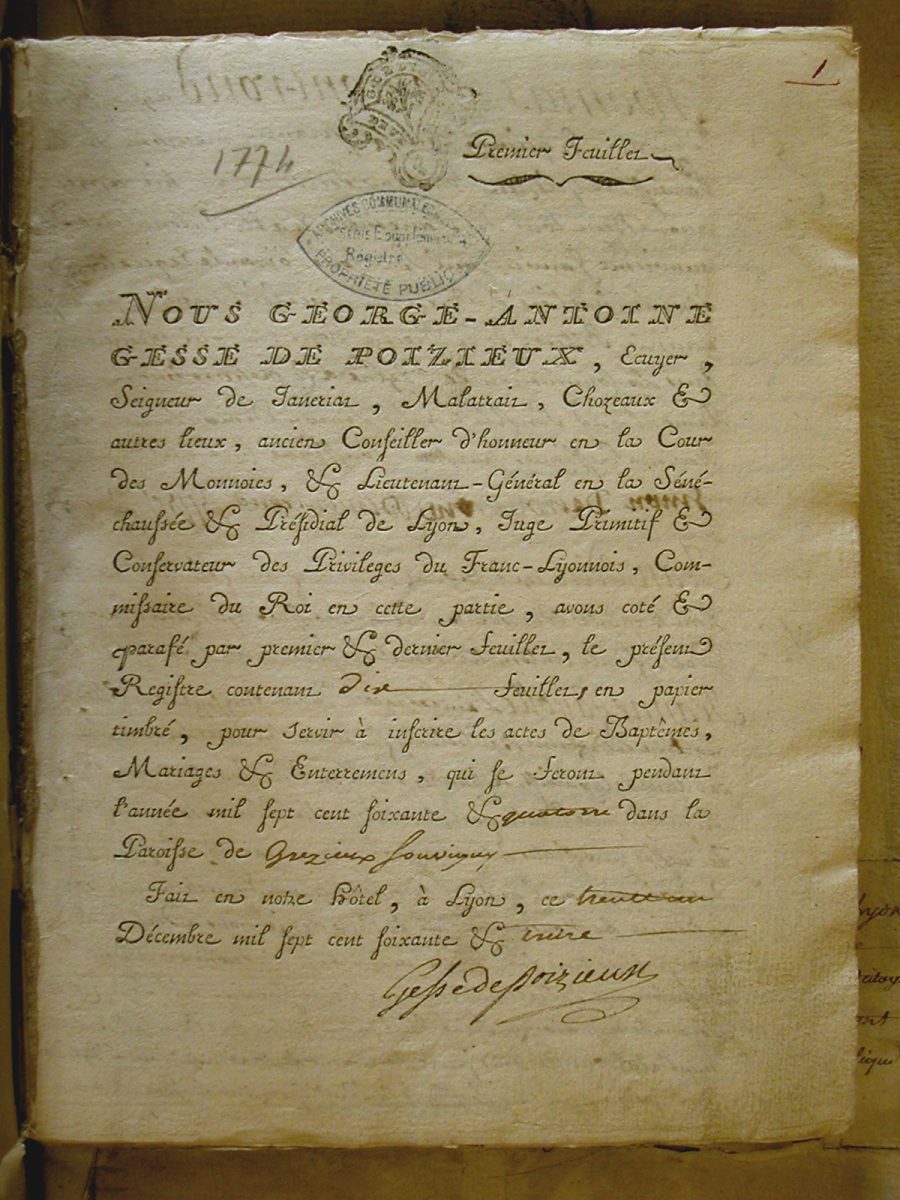 1
1774
Premier Feuillet
ARCHIVES COMMUNALES
Registre
PROPRIÉTÉ PUBLIQUE
NOUS GEORGE-ANTOINE
GESSE DE POIZIEUX, Ecuyer,
Seigneur de Janeriat, Malatrait, Chozeaux &
autres lieux, ancien Conseiller d'honneur en la Cour
des Monnoies, & Lieutenant-Général en la Séné-
chaussée & Présidial de Lyon, Juge Primitif &
Conservateur des Privileges du Franc-Lyonnois, Com-
missaire du Roi en cette partie, avons coté &
parafé par premier & dernier feuillet, le présent
Registre contenant dix feuillets en papier
timbré, pour servir à inscrire les actes de Baptêmes,
Mariages & Enterremens, qui se feront pendant
l'année mil sept cent soixante & quatorze dans la
Paroisse de Grezieux Souvigny
Fait en notre hôtel, à Lyon, ce trente un
Décembre mil sept cent soixante & treize
Gesse de Poizieux